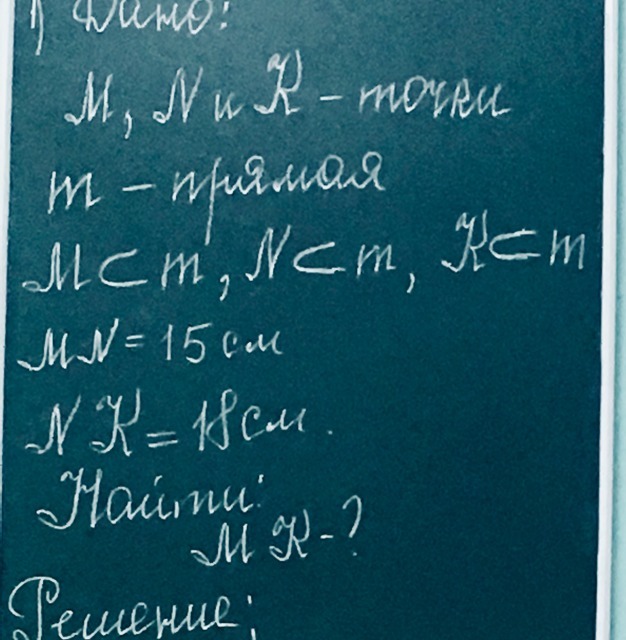 1) Дано:
M, N и K – точки
m – прямая
M⊂m, N⊂m, K⊂m
MN = 15 см
NK = 18 см.
Найти:
MK - ?
Решение: